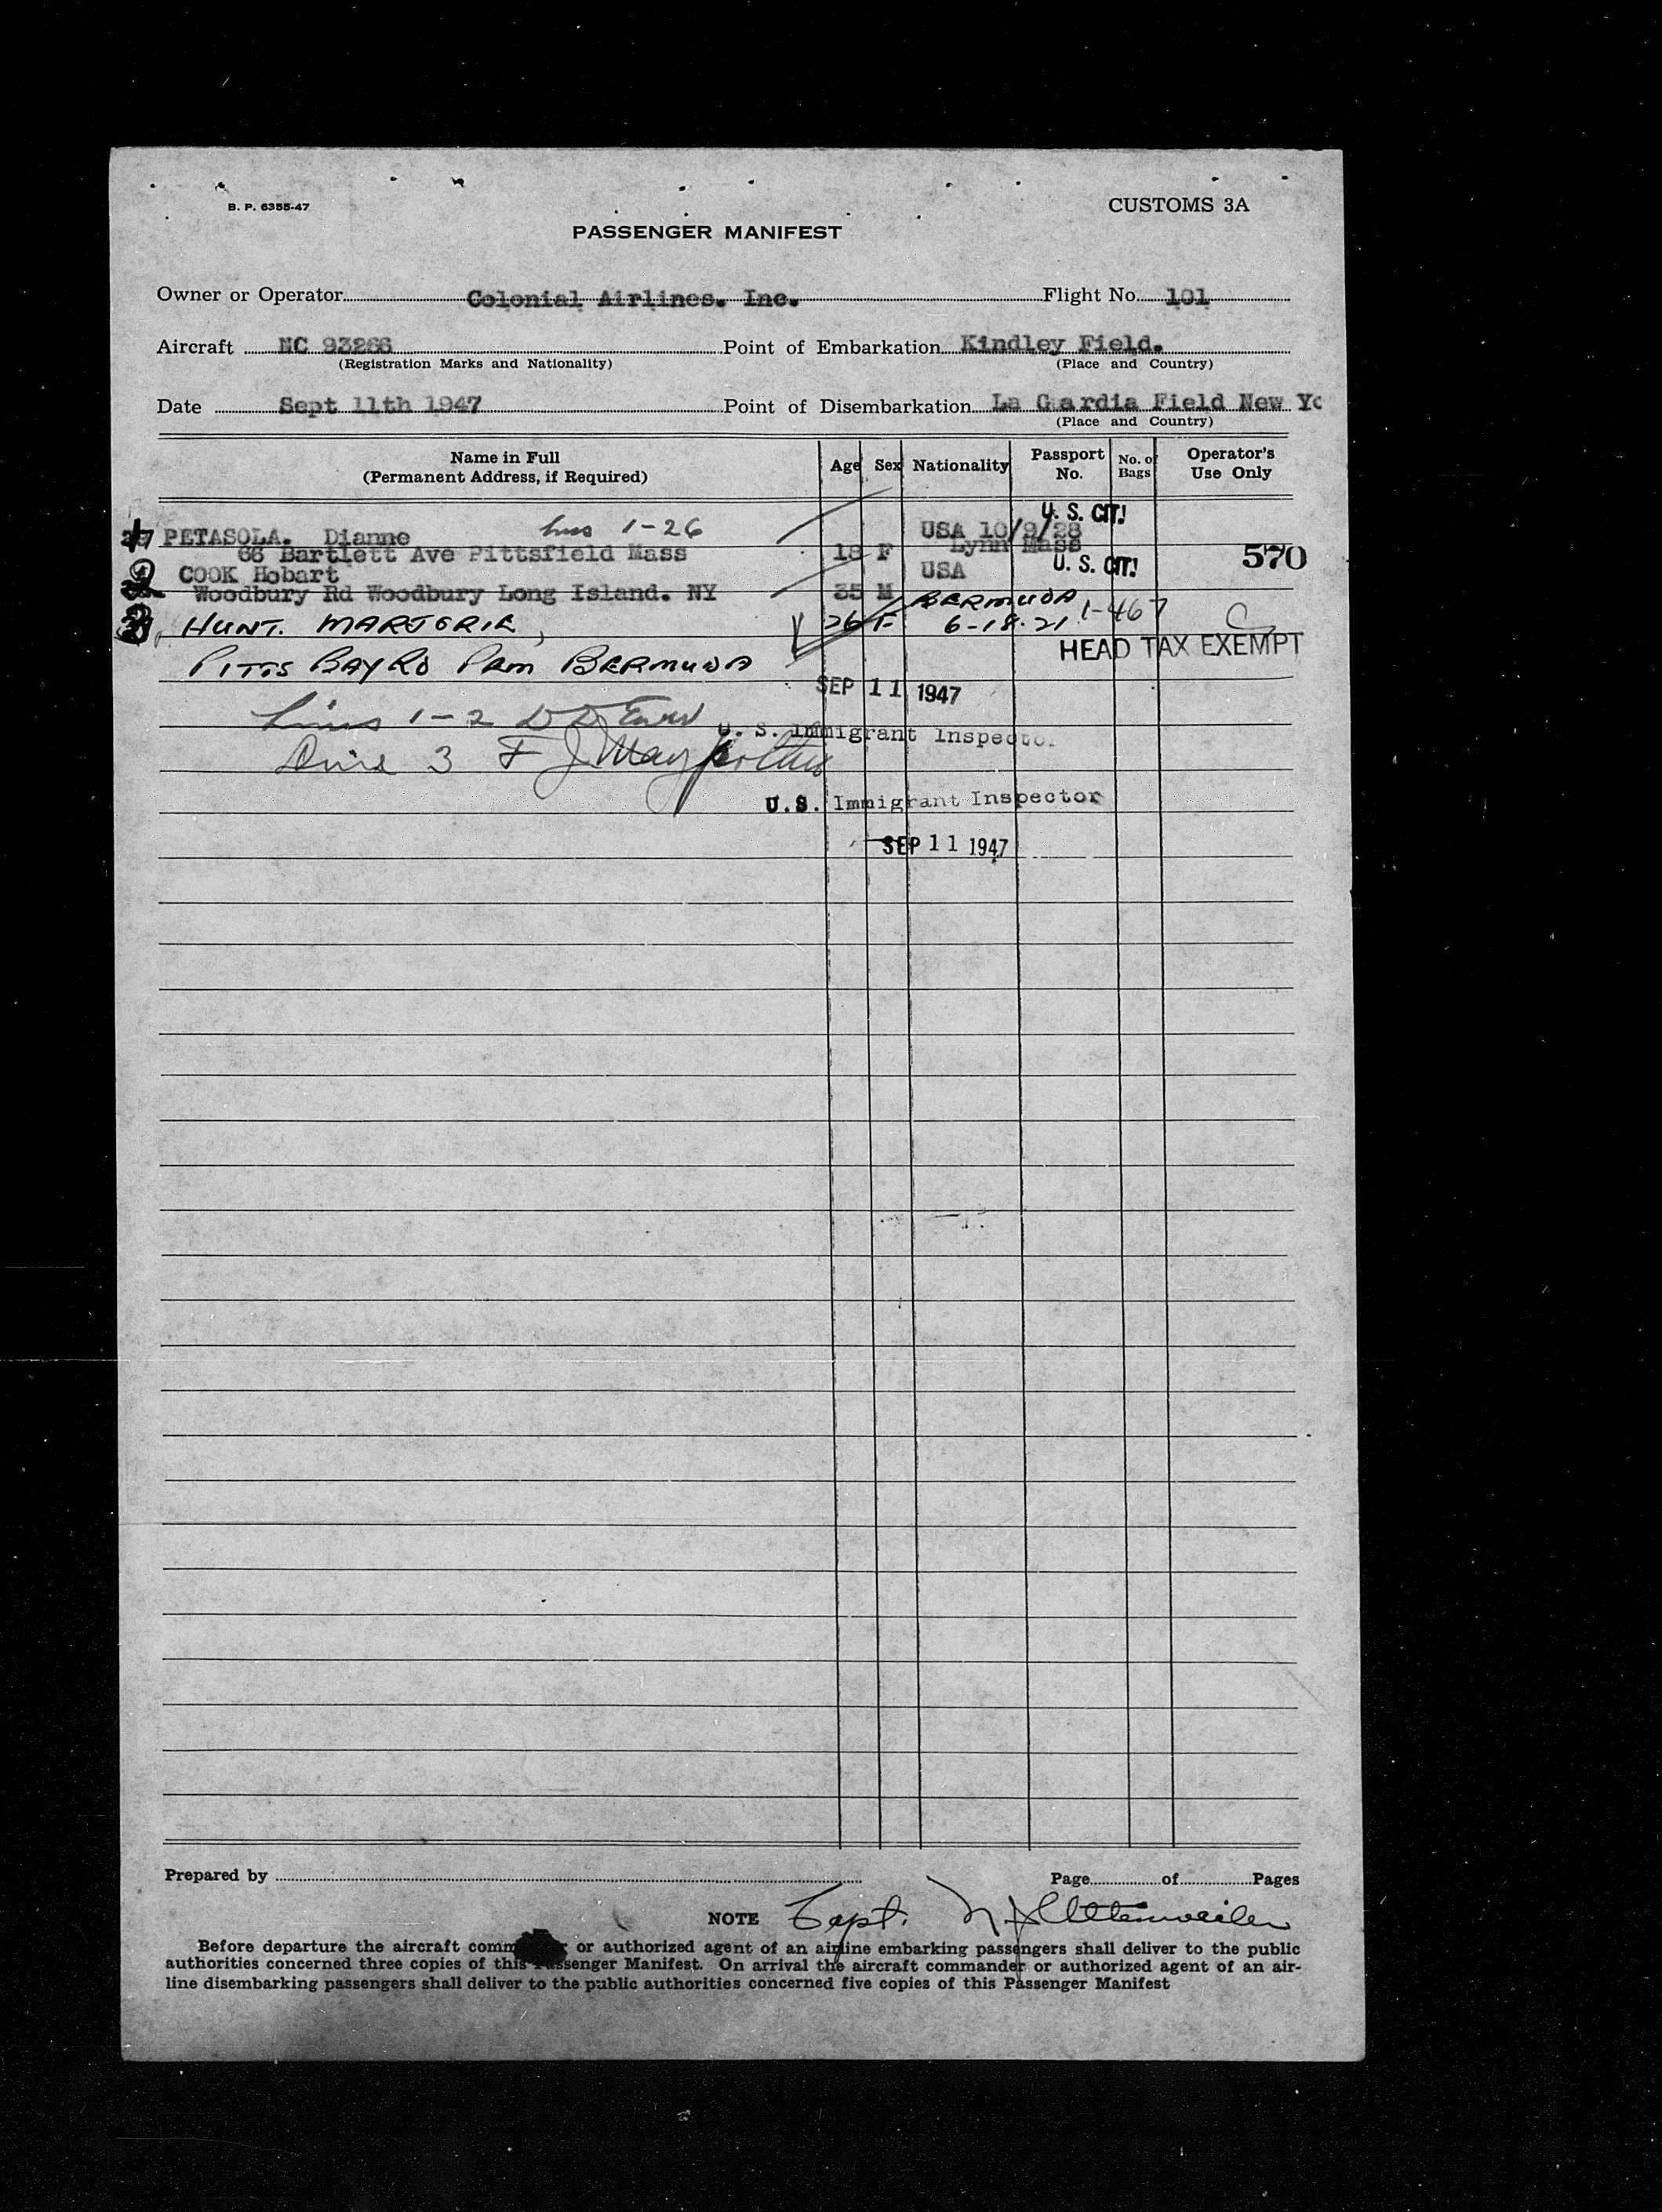 B. P. 6355-47
CUSTOMS 3A
PASSENGER MANIFEST
Owner or Operator Colonial Airlines. Inc. Flight No. 101
Aircraft NC 93266 Point of Embarkation Kindley Field.
(Registration Marks and Nationality) (Place and Country)
Date Sept 11th 1947 Point of Disembarkation La Guardia Field New Yo
(Place and Country)
Name in Full (Permanent Address, if Required) Age Sex Nationality Passport No. No. of Bags Operator's Use Only
U. S. CIT!
PETASOLA. Dianne 1-26 USA 10/9/28
66 Bartlett Ave Pittsfield Mass 18 F Lynn Mass 570
2 COOK Hobart USA U. S. CIT!
Woodbury Rd Woodbury Long Island. NY 35 M
3 HUNT. MARJORIE, 26 F BERMUDA 6-18-21 1-467 C
HEAD TAX EXEMPT
PITTS BAY RD PEM BERMUDA
SEP 11 1947
Lines 1-2
U. S. Immigrant Inspector
Line 3 F J
U.S. Immigrant Inspector
SEP 11 1947
Prepared by Page of Pages
NOTE Capt.
Before departure the aircraft comm r or authorized agent of an airline embarking passengers shall deliver to the public
authorities concerned three copies of this Passenger Manifest. On arrival the aircraft commander or authorized agent of an air-
line disembarking passengers shall deliver to the public authorities concerned five copies of this Passenger Manifest